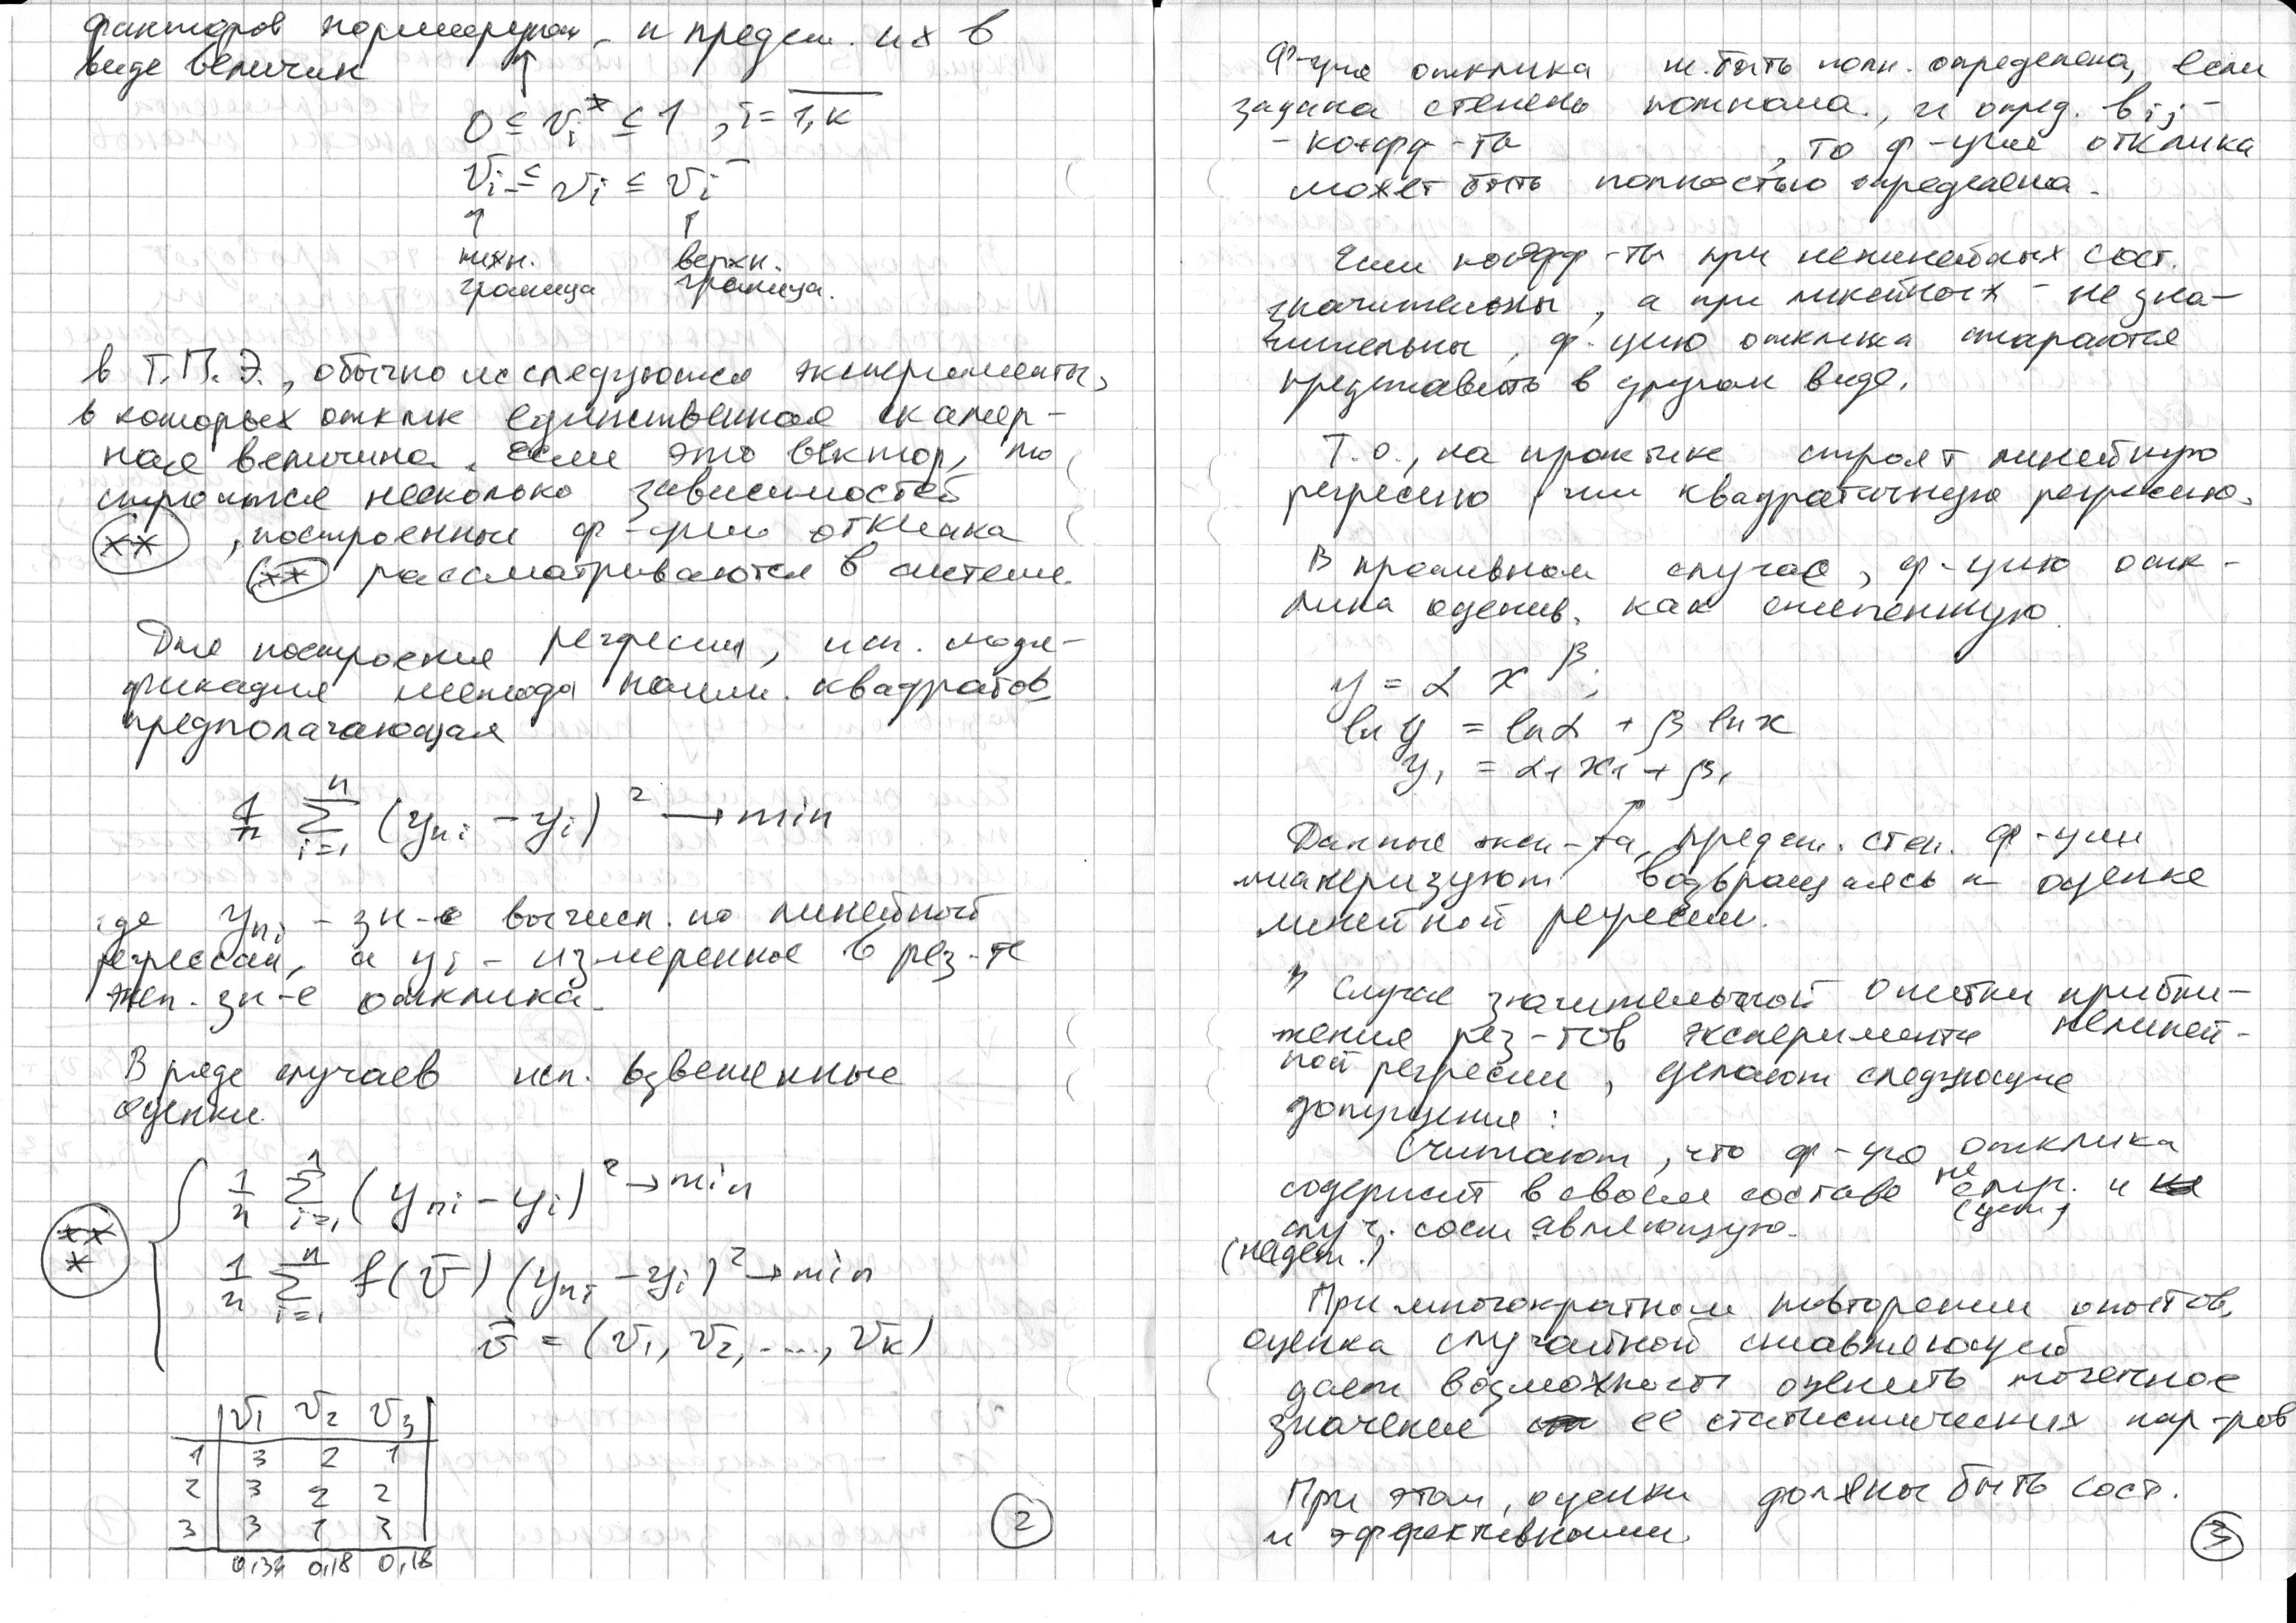 факторов нормируют и предст. их в
виде величин
0 ≤ v_i^* ≤ 1 , i = \overline{1,k}
v_i_ ≤ v_i ≤ v_i^-
↑ ↑
нижн. верхн.
граница граница.
в Т.П.Э., обычно исследуются эксперименты,
в которых отклик единственная скаляр-
ная величина. Если это вектор, то
строятся несколько зависимостей
(**) , построенные ф-ции отклика
(**) рассматриваются в системе.
Для построения регресии, исп. моди-
фикация метода наим. квадратов
предполагающая
1/n \sum_{i=1}^{n} (y_{лi} - y_i)^2 → min
где y_{лi} - зн-е вычисл. по линейной
регрессии, а y_i - измеренное в рез-те
эксп. зн-е отклика.
В ряде случаев исп. взвешенные
оценки.
1/n \sum_{i=1}^{n} (y_{лi} - y_i)^2 → min
(***)
1/n \sum_{i=1}^{n} f(\bar{v}) (y_{лi} - y_i)^2 → min
\bar{v} = (v_1, v_2, ...., v_k)
v_1 v_2 v_3
1 3 2 1
2 3 2 2
3 3 1 3
0,34 0,18 0,18
2
Ф-ция отклика м.быть полн. определена, если
задана степень полинома., и опред. в_{ij} -
- коэфф-ты , то ф-ция отклика
может быть полностью определена.
Если коэфф-ты при нелинейных сост.
значительны, а при линейных - не зна-
чительны, ф-цию отклика стараются
представить в другом виде.
Т.о., на практике строят линейную
регресию или квадратичную регресию.
В противном случае, ф-цию отк-
лика оценив. как степенную.
y = α x^β ;
ln y = ln α + β ln x
y_1 = α_1 x_1 + β_1
Данные эксп-та, предст. степ. ф-ции
линеризуют возвращаясь к оценке
линейной регресии.
В случае значительной ошибки прибли-
жения рез-тов эксперимента нелиней-
ной регресии, делают следующие
допущения:
Считают, что ф-ция отклика
содержит в своем составе не случ. и
(дет.)
случ. составляющую.
(недет.)
При многократном повторении опытов,
оценка случайной ставляющей
дает возможность оценить точечное
значение ее статистических пар-ров
При этом, оценки должны быть сост.
и эффективными.
3